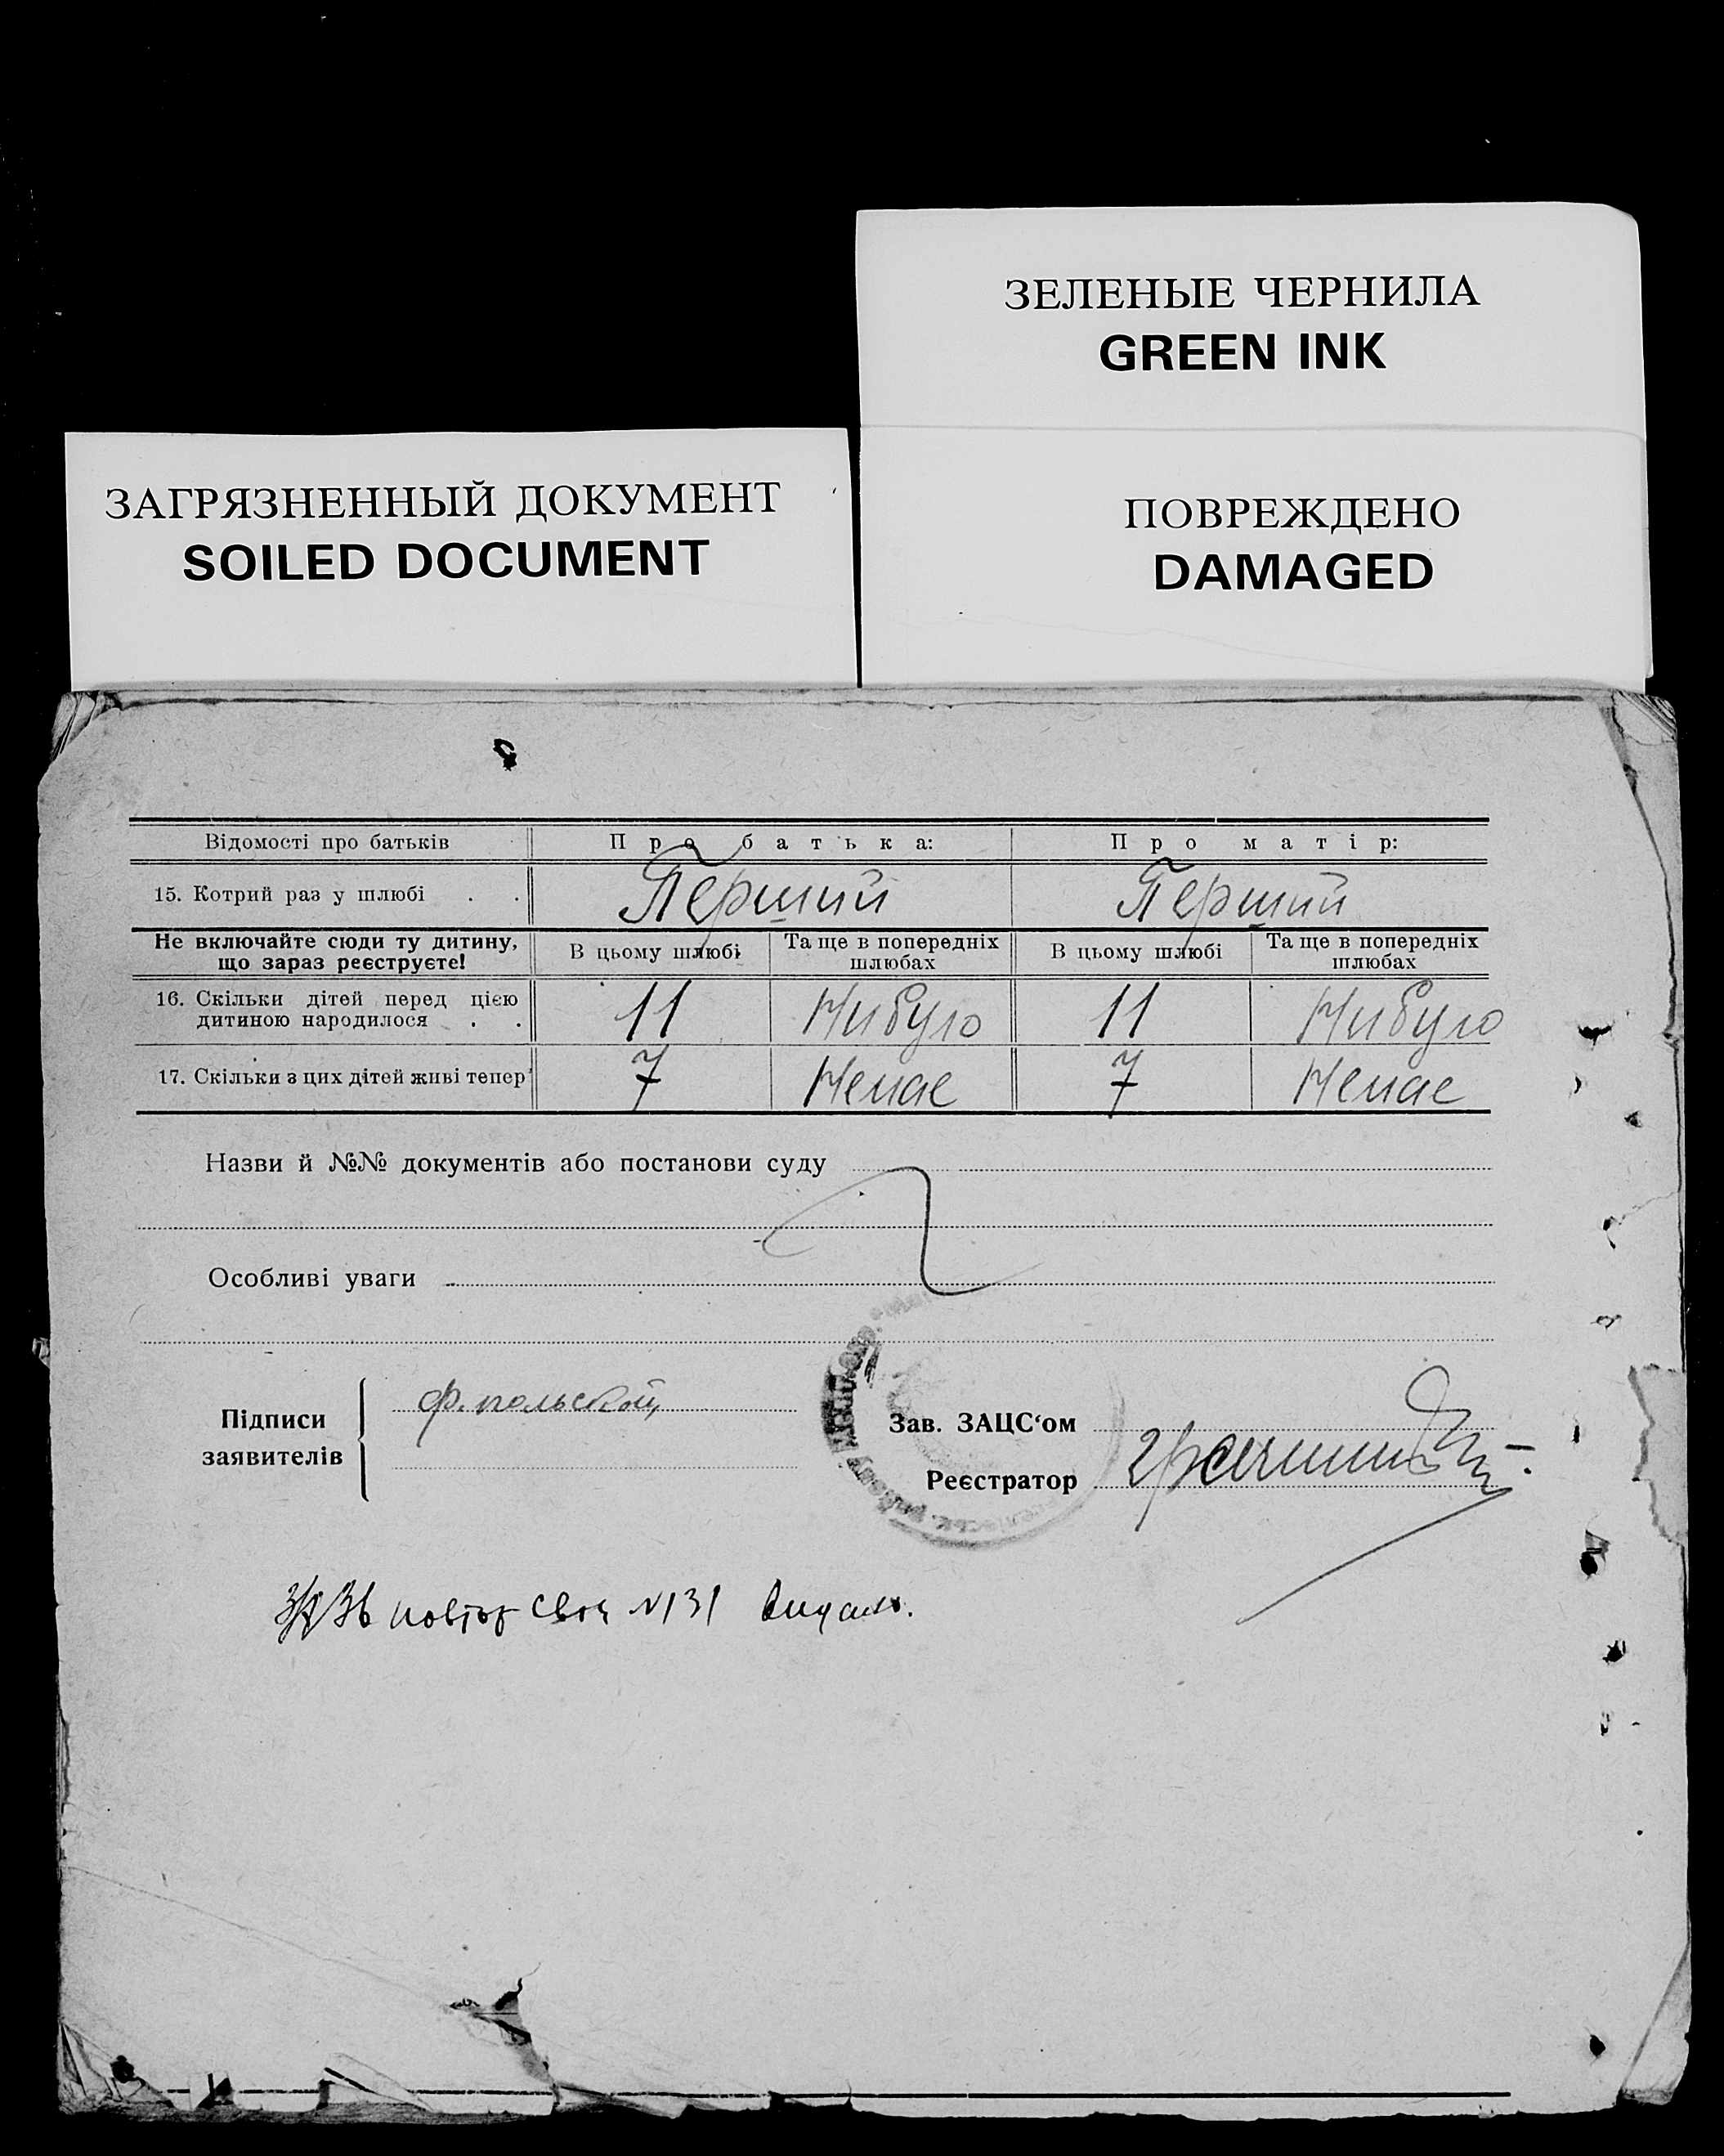 ЗЕЛЕНЫЕ ЧЕРНИЛА
GREEN INK
ЗАГРЯЗНЕННЫЙ ДОКУМЕНТ
SOILED DOCUMENT
ПОВРЕЖДЕНО
DAMAGED
Відомості про батьків Про батька: Про матір:
15. Котрий раз у шлюбі . . Перший Перший
Не включайте сюди ту дитину, що зараз реєструєте! В цьому шлюбі Та ще в попередніх шлюбах В цьому шлюбі Та ще в попередніх шлюбах
16. Скільки дітей перед цією дитиною народилося . . 11 Нибуло 11 Нибуло
17. Скільки з цих дітей живі тепер 7 Немає 7 Немає
Назви й №№ документів або постанови суду
Особливі уваги
Підписи заявителів Ф. польской
Зав. ЗАЦС‘ом
Реєстратор
повтор N131